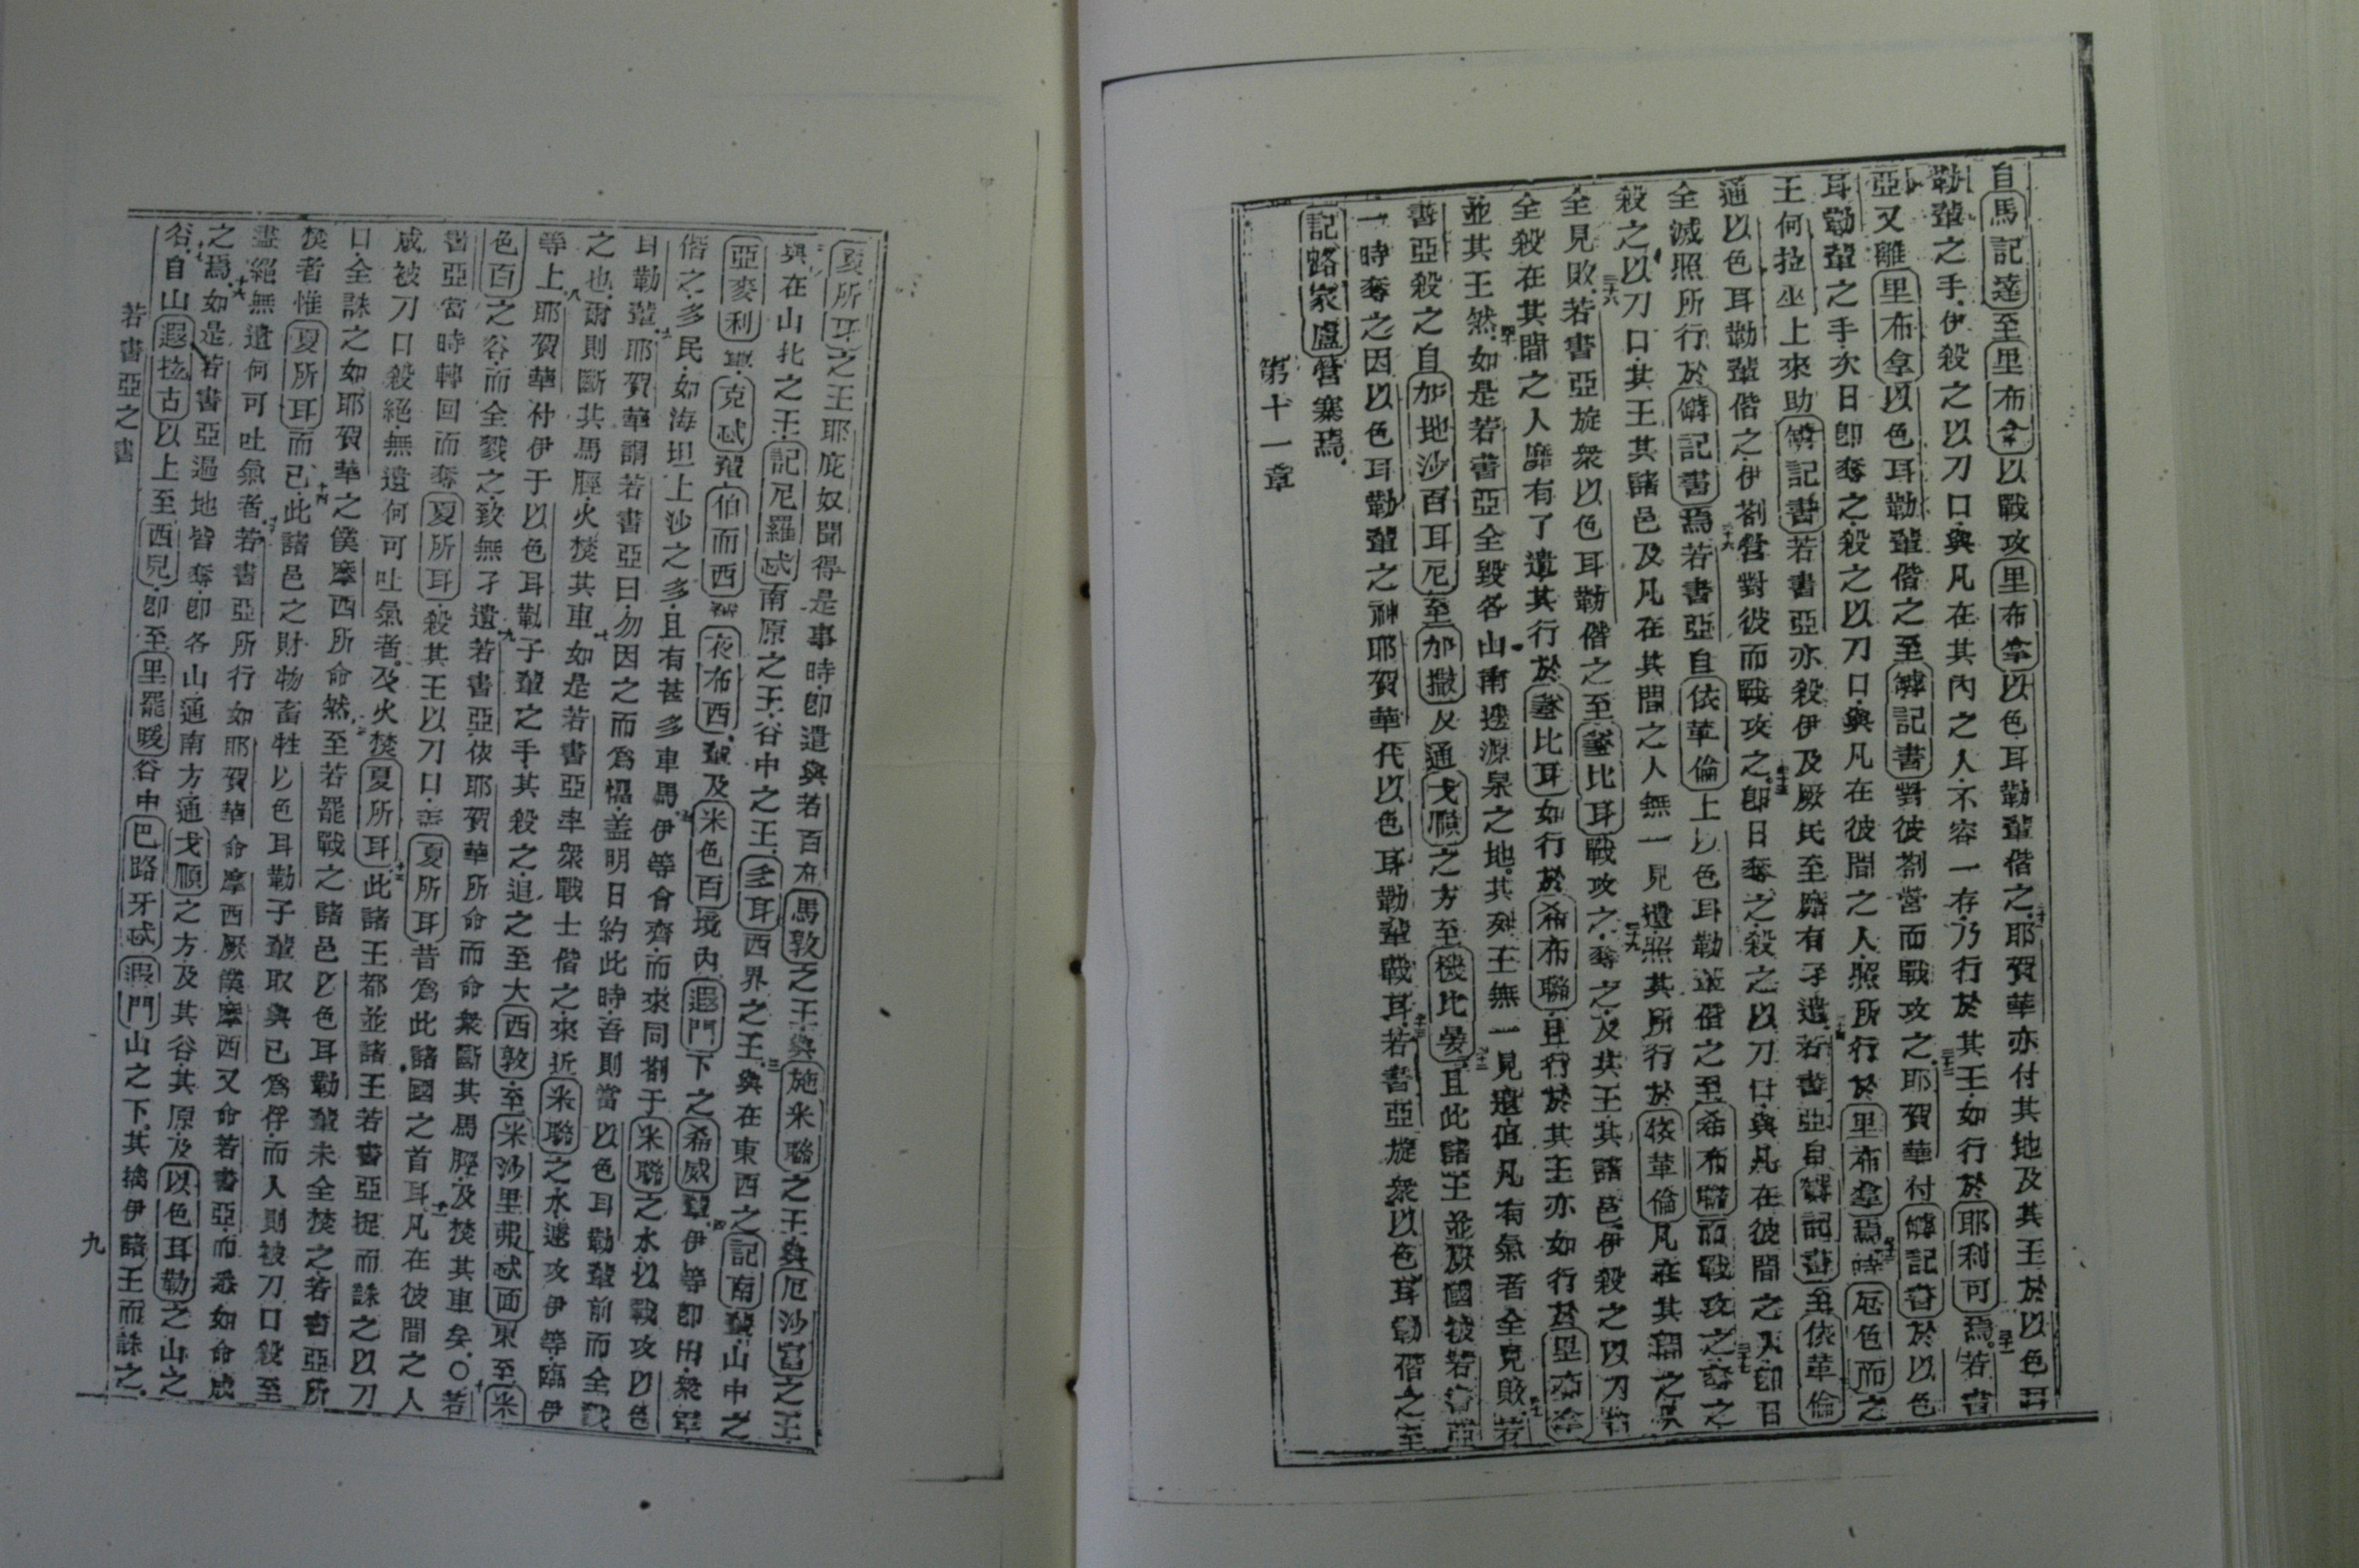 自馬記達至里布拿以戰攻里布拿以色耳勒輩偕之耶賀華亦付其地及其王於以色耳
勒輩之手伊殺之以刀口與凡在其內之人不容一存乃行於其王如行於耶利可焉若書
亞又離里布拿以色耳勒輩偕之至記書對彼劄營而戰攻之耶賀華付記書於以色
耳勒輩之手次日卽奪之殺之以刀口與凡在彼間之人照所行於里布拿焉時厄色而之
王何拉坐上來助記書若書亞亦殺伊及厥民至靡有孑遺若書亞自記書至依革倫
通以色耳勒輩偕之伊劄營對彼而戰攻之卽日奪之殺之以刀口與凡在彼間之人卽日
全滅照所行於記書焉若書亞自依革倫上以色耳勒輩偕之至希布聯而戰攻之奪之
殺之以刀口其王其諸邑及凡在其間之人無一見遺照其所行於依革倫凡在其間之人
全見敗若書亞旋衆以色耳勒偕之至比耳戰攻之奪之及其王其諸邑伊殺之以刀口
全殺在其間之人靡有了遺其行於比耳如行於希布聯且行於其王亦如行於里布拿
並其王然如是若書亞全毀各山南邊源泉之地其列王無一見遺值凡有氣者全見敗若
書亞殺之自加地沙百耳厄至加撒及通戈順之方至機比晏且此諸王並厥國被若書亞
一時奪之因以色耳勒輩之神耶賀華代以色耳勒輩戰耳若書亞旋衆以色耳勒偕之至
記路家廬營寨焉
第十一章
夏所耳之王耶庇奴聞得是事時卽遣與若百布馬敦之王與施米聯之王與厄沙富之王
與在山北之王記尼羅忒南原之王谷中之王多耳西界之王與在東西之記南輩山中之
亞麥利輩克忒輩伯而西輩夜布西輩及米色百境內遐門下之希威輩伊等卽出衆軍
偕之多民如海坦上沙之多且有甚多車馬伊等會齊而來同劄于米聯之水以戰攻以色
耳勒輩耶賀華謂若書亞曰勿因之而爲慍蓋明日約此時吾則當以色耳勒輩前而全戮
之也爾則斷其馬脛火焚其車如是若書亞率衆戰士偕之來近米聯之水遽攻伊等臨伊
等上耶賀華付伊于以色耳勒子輩之手其殺之追之至大西敦至米沙里弗忒面東至米
色百之谷而全戮之致無孑遺若書亞依耶賀華所命而命衆斷其馬脛及焚其車矣○若
書亞當時轉回而奪夏所耳殺其王以刀口蓋夏所耳昔爲此諸國之首耳凡在彼間之人
咸被刀口殺絕無遺何可吐氣者及火焚夏所耳此諸王都並諸王若書亞捉而誅之以刀
口全誅之如耶賀華之僕摩西所命然至若罷戰之諸邑以色耳勒輩未全焚之若書亞所
焚者惟夏所耳而已此諸邑之財物畜牲以色耳勒子輩取與已爲俘而人則被刀口殺至
盡絕無遺何可吐氣者若書亞所行如耶賀華命摩西厥僕摩西又命若書亞而悉如命成
之焉如是若書亞過地皆奪卽各山通南方通戈順之方及其谷其原及以色耳勒之山之
谷自山遐拉古以上至西兒卽至里罷暖谷中巴路牙忒遐門山之下其擒伊諸王而誅之
若書亞之書
九